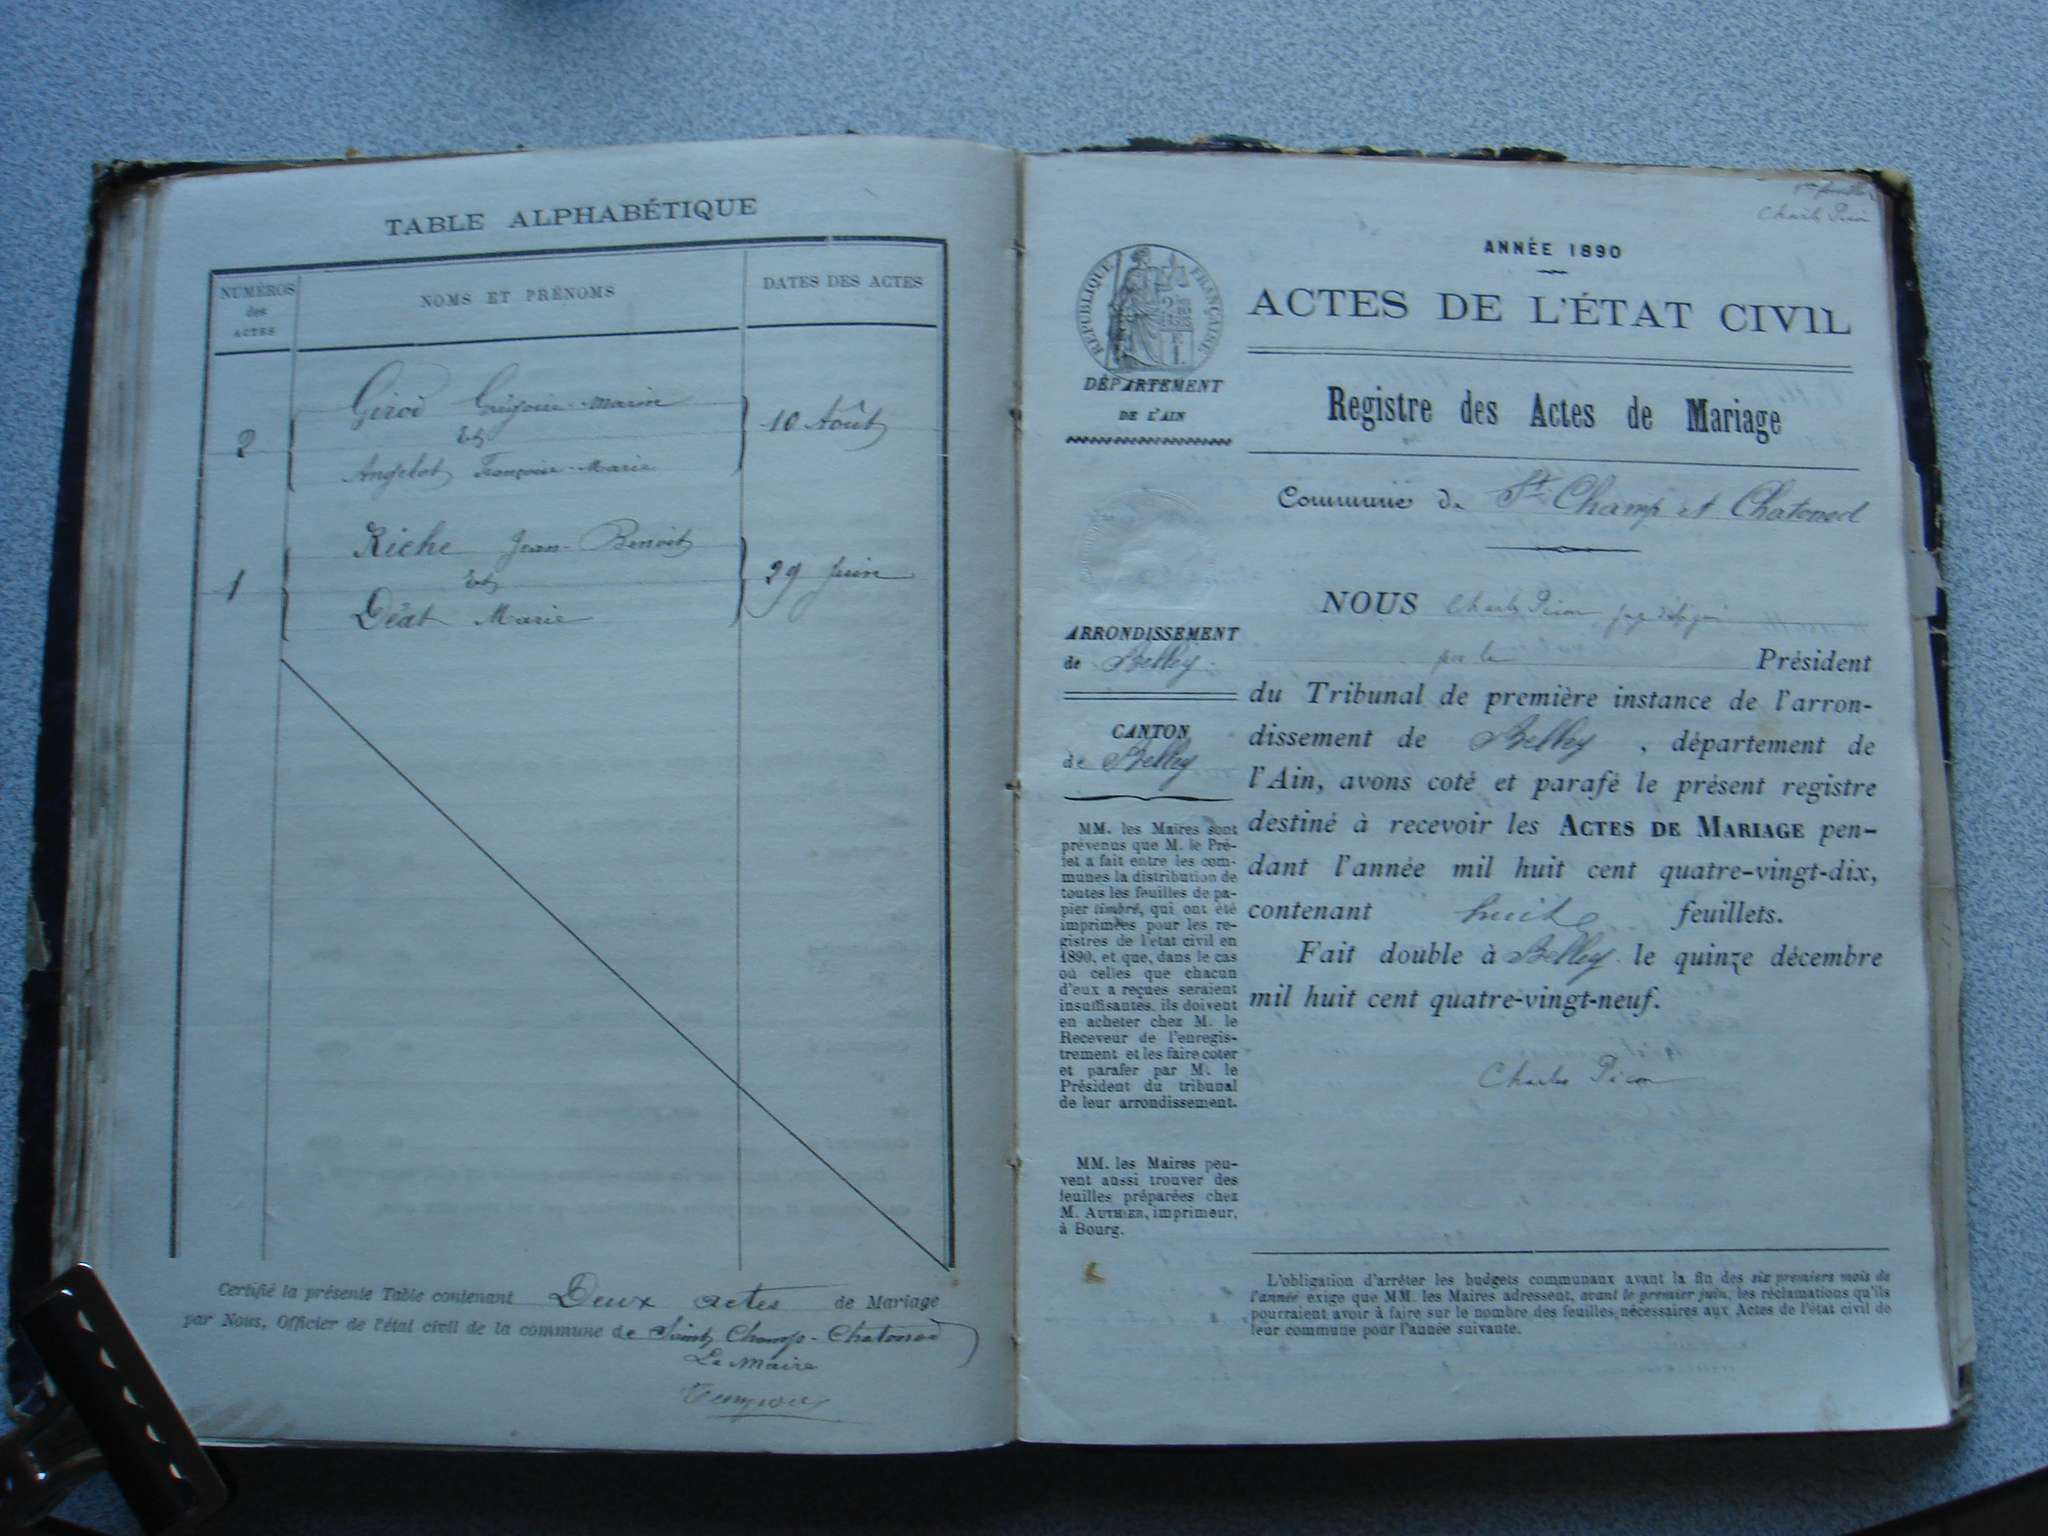 TABLE ALPHABÉTIQUE
NUMÉROS
des
ACTES
NOMS ET PRÉNOMS
DATES DES ACTES
2
Giroi Grégoire-Marin
Et
Angelot Françoise-Marie
10 Août
1
Riche Jean-Benoit
Et
Déat Marie
29 Juin
Certifié la présente Table contenant Deux actes de Mariage
par Nous, Officier de l'état civil de la commune de Saint Champ-Chatonod
Le Maire
Charles Picon
ANNÉE 1890
ACTES DE L'ÉTAT CIVIL
RÉPUBLIQUE FRANÇAISE
DÉPARTEMENT
DE L'AIN
Registre des Actes de Mariage
Commune de St Champ et Chatonod
ARRONDISSEMENT
de Belley
CANTON
de Belley
MM. les Maires sont
prévenus que M. le Pré-
fet a fait entre les com-
munes la distribution de
toutes les feuilles de pa-
pier timbré, qui ont été
imprimées pour les re-
gistres de l'état civil en
1890, et que, dans le cas
où celles que chacun
d'eux a reçues seraient
insuffisantes, ils doivent
en acheter chez M. le
Receveur de l'enregis-
trement et les faire coter
et parafer par M. le
Président du tribunal
de leur arrondissement.
MM. les Maires peu-
vent aussi trouver des
feuilles préparées chez
M. AUTHIER, imprimeur,
à Bourg.
NOUS Charles Picon juge désigné
par le Président
du Tribunal de première instance de l'arron-
dissement de Belley, département de
l'Ain, avons coté et parafé le présent registre
destiné à recevoir les ACTES DE MARIAGE pen-
dant l'année mil huit cent quatre-vingt-dix,
contenant huit feuillets.
Fait double à Belley le quinze décembre
mil huit cent quatre-vingt-neuf.
Charles Picon
L'obligation d'arrêter les budgets communaux avant la fin des six premiers mois de
l'année exige que MM. les Maires adressent, avant le premier juin, les réclamations qu'ils
pourraient avoir à faire sur le nombre des feuilles nécessaires aux Actes de l'état civil de
leur commune pour l'année suivante.